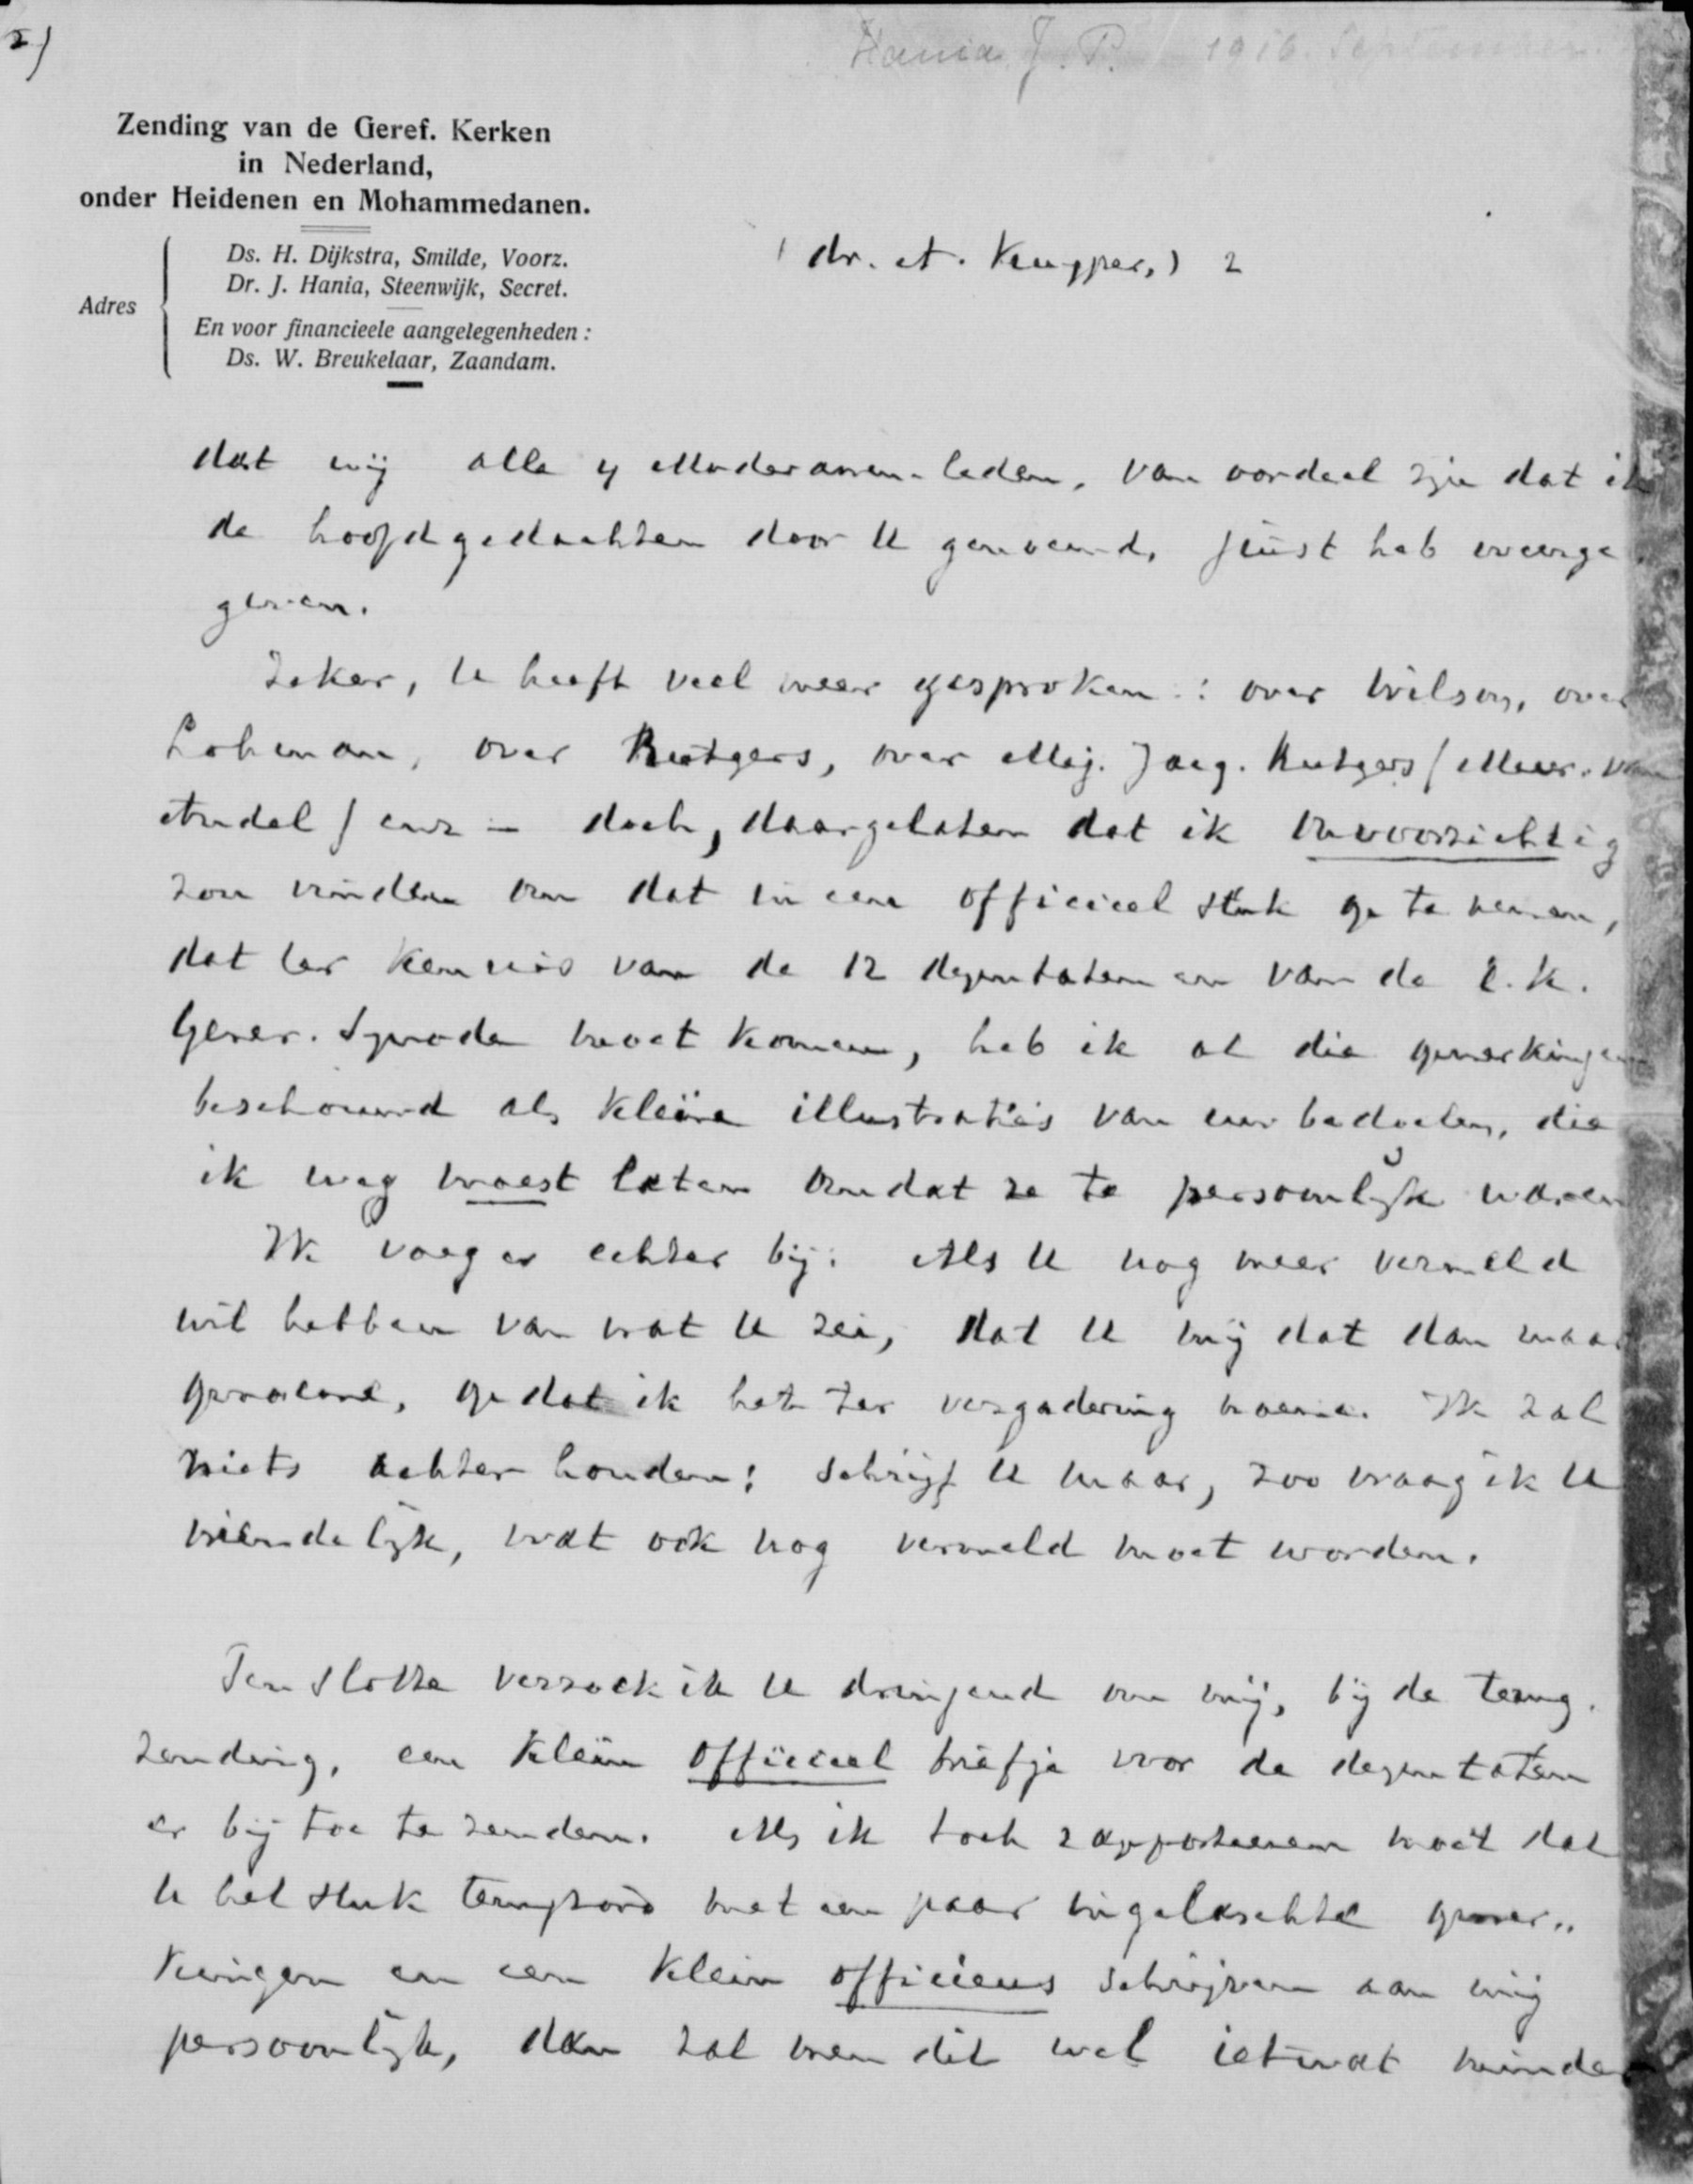 2)
Hania J. P. / 1916. September
Zending van de Geref. Kerken
in Nederland,
onder Heidenen en Mohammedanen.
Adres
Ds. H. Dijkstra, Smilde, Voorz.
Dr. J. Hania, Steenwijk, Secret.
En voor financieele aangelegenheden:
Ds. W. Breukelaar, Zaandam.
(dr. A. Kuyper,) 2
dat wij alle 4 Moderamen-leden, van oordeel zijn dat ik
de hoofdgedachten door U genoemd, juist heb weerge-
geven.
Zeker, U heeft veel meer gesproken: over Wilson, over
Lohman, over Rutgers, over Mej. Jacq. Rutgers / Mevr. van
Andel / enz - doch, daargelaten dat ik onvoorzichtig
zou vinden om dat in een officieel stuk op te nemen,
dat ter kennis van de 12 deputaten en van de e.k.
Gener. Synode moet komen, heb ik al die opmerkingen
beschouwd als kleine illustratie's van uw bedoelen, die
ik weg moest laten omdat ze te persoonlijk waren
Ik voeg er echter bij: Als U nog meer vermeld
wil hebben van wat U zei, dat U mij dat dan maar
opnoeme, opdat ik het ter vergadering noeme. Ik zal
niets achter houden: schrijf U maar, zoo vraag ik U
vriendelijk, wat ook nog vermeld moet worden.
Ten slotte verzoek ik U dringend om mij, bij de terug-
zending, een klein officieel briefje voor de deputaten
er bij toe te zenden. Als ik toch rapporteeren moet dat
U het stuk terugzond met een paar ingelaschte opmer-
kingen en een klein officieus schrijven aan mij
persoonlijk, dan zal men dit wel ietwat minder